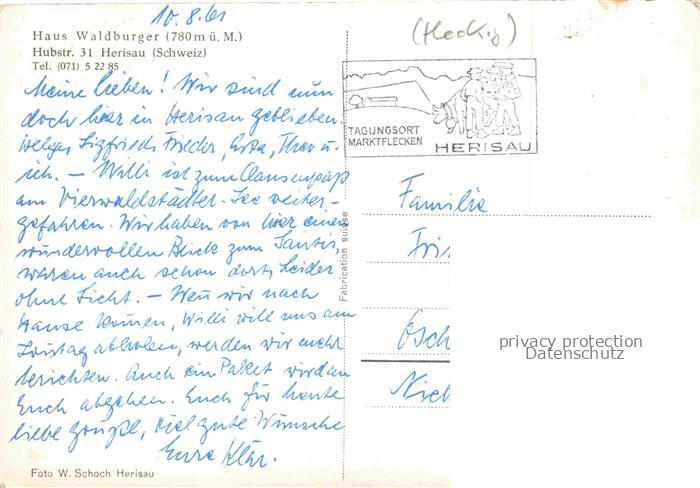 10.8.61
(fleckig)
Haus Waldburger (780 m ü. M.)
Hubstr. 31 Herisau (Schweiz)
Tel. (071) 5 22 85
Meine Lieben! Wir sind nun
doch hier in Herisau geblieben.
Helga, Siegfried, Frieder, Theo u.
ich. — Willi ist zum Clausenpaß
am Vierwaldstädter-See weiter-
gefahren. Wir haben von hier einen
wundervollen Blick zum Säntis,
waren auch schon dort, leider
ohne Sicht. — Wenn wir nach
Hause kommen, Willi will uns am
abholen, werden wir mehr
berichten. Auch ein Paket wird an
Euch abgehen. Euch für heute
liebe Grüße, viel gute Wünsche
Eure Klär.
Foto W. Schoch Herisau
Fabrication suisse
TAGUNGSORT
MARKTFLECKEN
HERISAU
Familie
Fri
Osch
Nie
privacy protection
Datenschutz